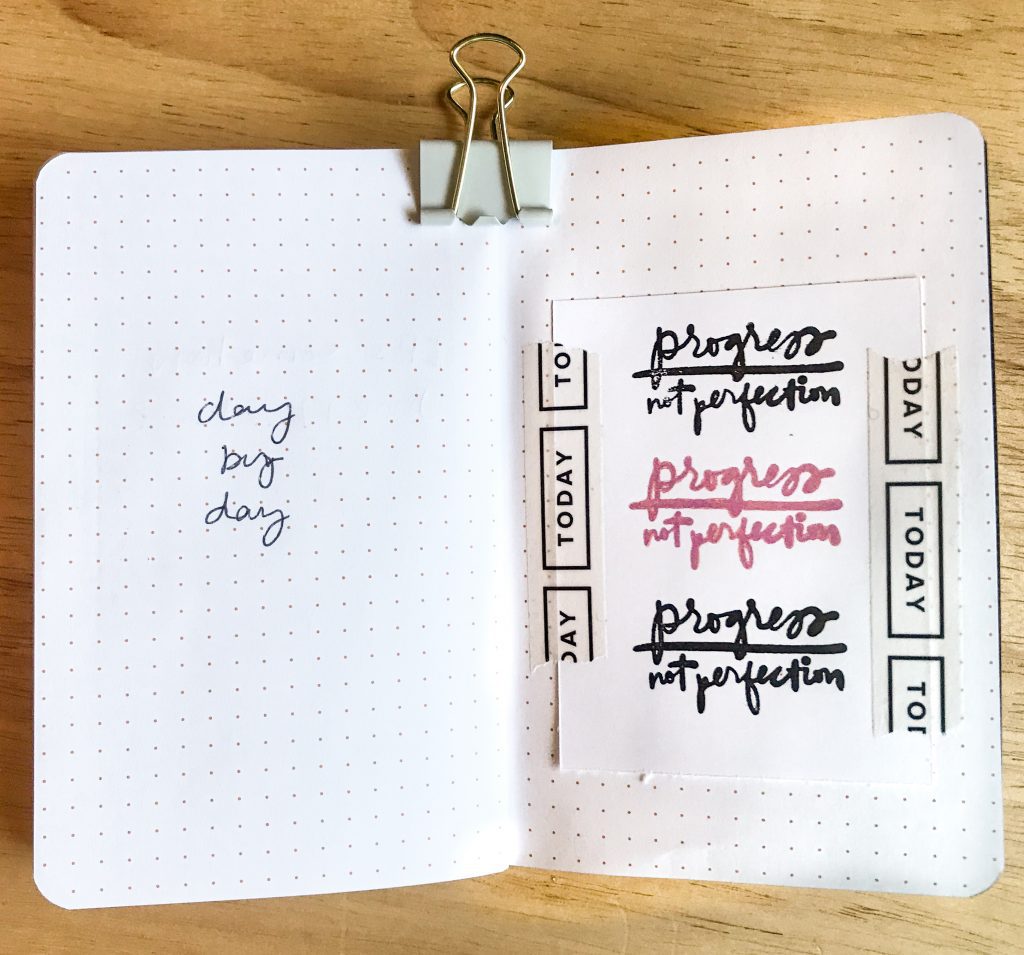 day
by
day
TO
TODAY
DAY
progress
not perfection
progress
not perfection
progress
not perfection
ODAY
TODAY
TO